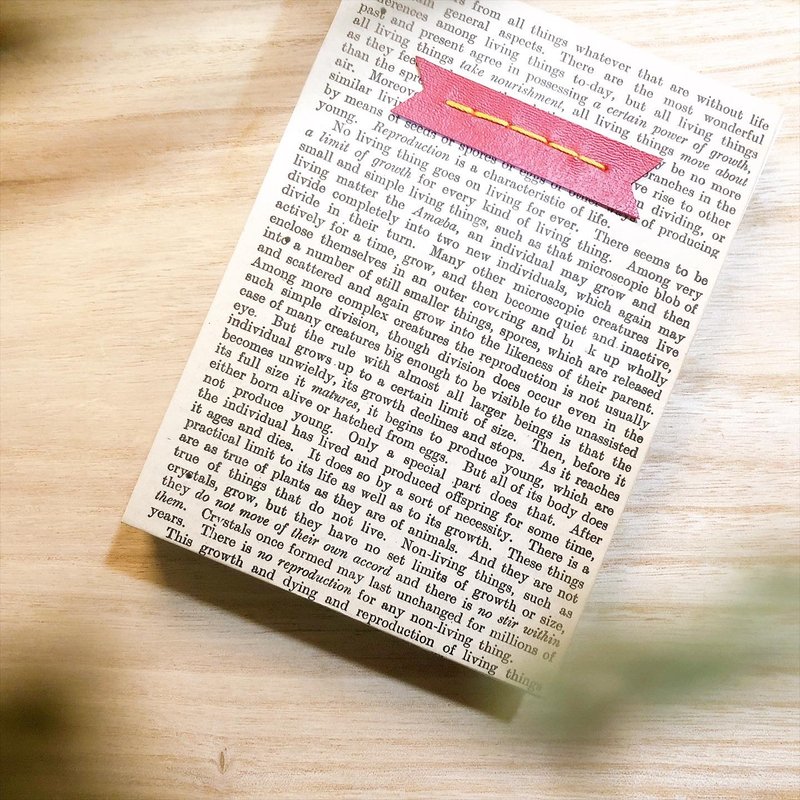 from all things whatever that are without life
general aspects. There are the most wonderful
differences among living things to-day, but all living things
past and present agree in possessing a certain power of growth,
all living things take nourishment, all living things move about
as they be no more
than the branches in the
air. rise to other
similar dividing, or
by means of seeds or spores or eggs or of producing
young. Reproduction is a characteristic of life.
No living thing goes on living for ever. There seems to be
a limit of growth for every kind of living thing. Among very
small and simple living things, such as that microscopic blob of
living matter the Amœba, an individual may grow and then
divide completely into two new individuals, which again may
divide in their turn. Many other microscopic creatures live
actively for a time, grow, and then become quiet and inactive,
enclose themselves in an outer covering and up wholly
into a number of still smaller things, spores, which are released
and scattered and again grow into the likeness of their parent.
Among more complex creatures the reproduction is not usually
such simple division, though division does occur even in the
case of many creatures big enough to be visible to the unassisted
eye. But the rule with almost all larger beings is that the
individual grows up to a certain limit of size. Then, before it
becomes unwieldy, its growth declines and stops. As it reaches
its full size it matures, it begins to produce young, which are
either born alive or hatched from eggs. But all of its body does
not produce young. Only a special part does that. After
the individual has lived and produced offspring for some time,
it ages and dies. It does so by a sort of necessity. There is a
practical limit to its life as well as to its growth. These things
are as true of plants as they are of animals. And they are not
true of things that do not live. Non-living things, such as
crystals, grow, but they have no set limits of growth or size,
they do not move of their own accord and there is no stir within
them. Crystals once formed may last unchanged for millions of
years. There is no reproduction for any non-living thing.
This growth and dying and reproduction of living things